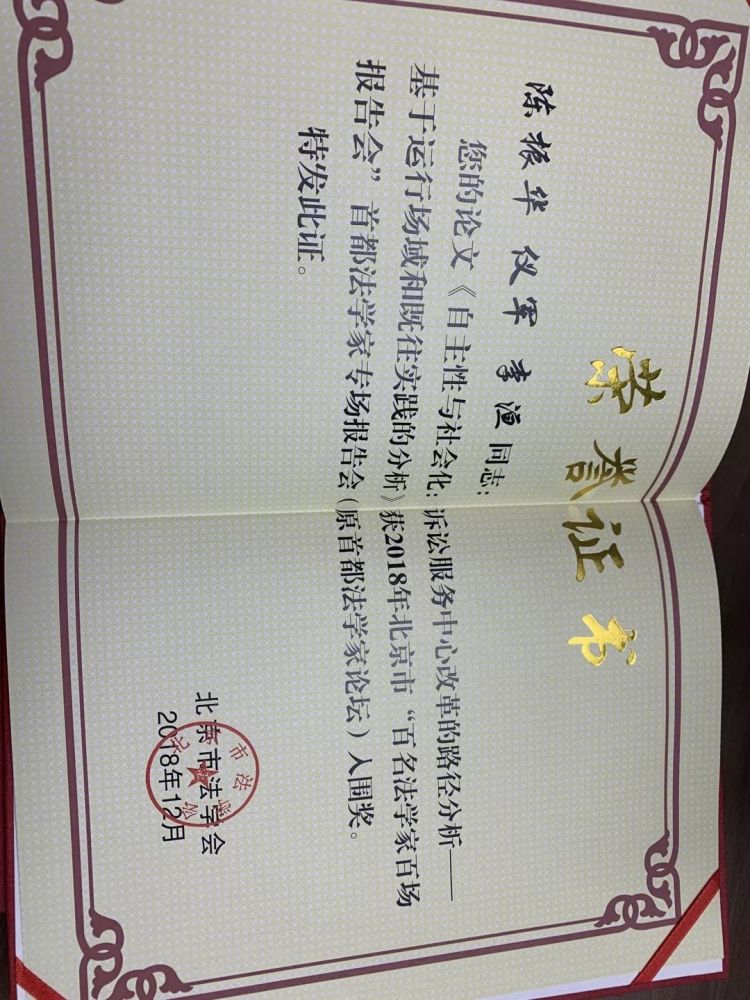 荣誉证书
陈振华 仪军 李洹 同志：
您的论文《自主性与社会化：诉讼服务中心改革的路径分析——
基于运行场域和既往实践的分析》获2018年北京市“百名法学家百场
报告会”首都法学家专场报告会（原首都法学家论坛）入围奖。
特发此证。
北京市法学会
2018年12月